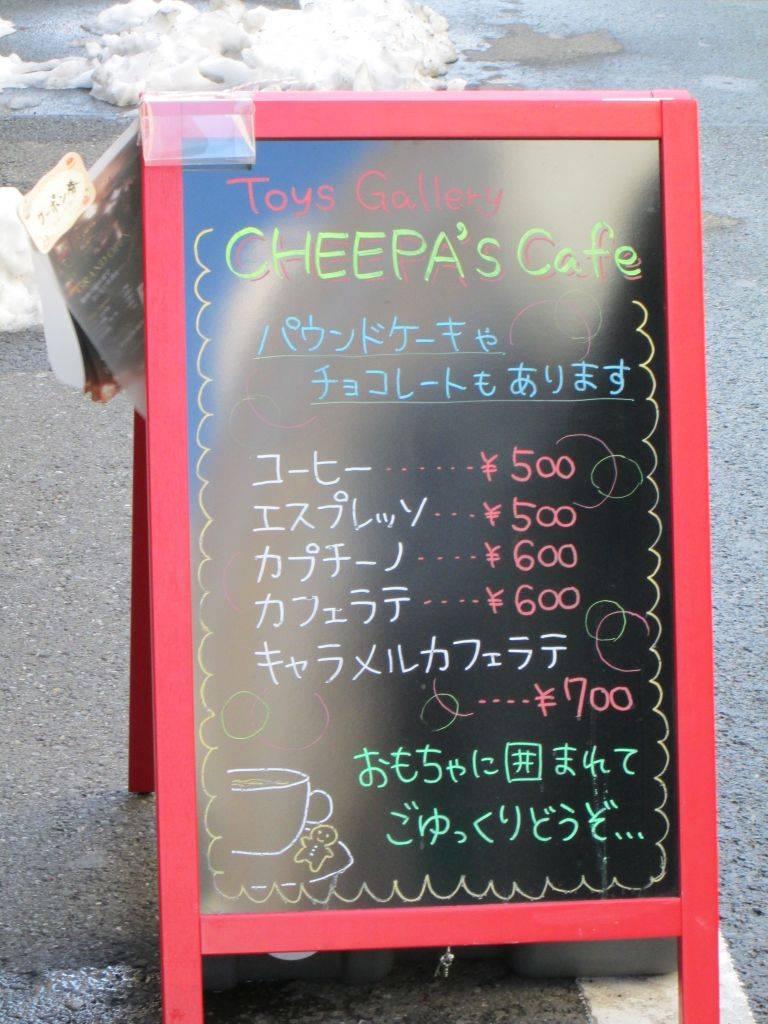 Toys Gallery
CHEEPA's Cafe
パウンドケーキや
チョコレートもあります
コーヒー.......¥500
エスプレッソ...¥500
カプチーノ....¥600
カフェラテ....¥600
キャラメルカフェラテ
....¥700
おもちゃに囲まれて
ごゆっくりどうぞ...
クーポン券